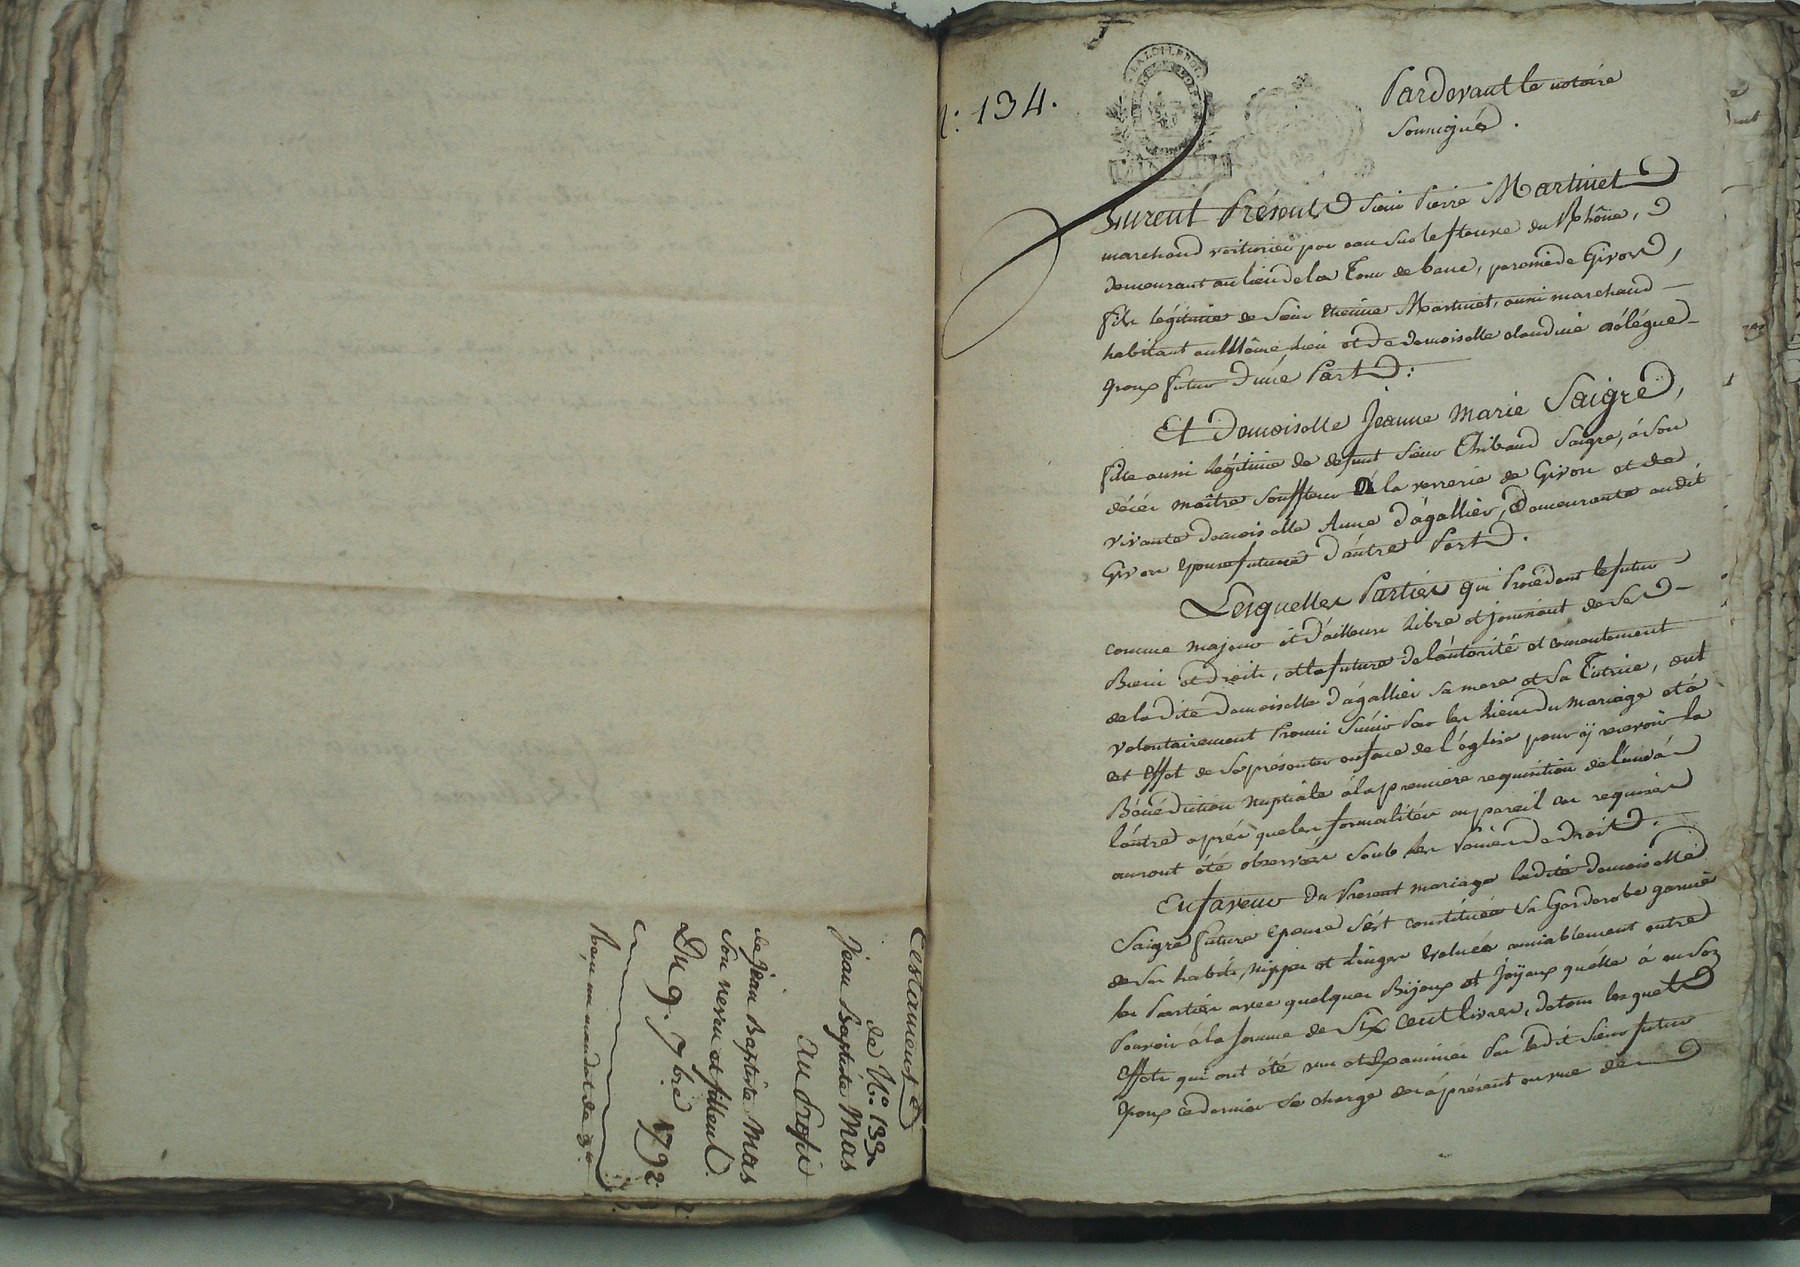 Testament
de N.° 133.
Jean Baptiste Mas
au Profit
de Jean Baptiste Mas
son neveu et filleul.
Du 9. 7bre 1792.
Reçu un mandat de
N.° 134.
LA LOI LE ROI
Pardevant le notaire
soussigné.
furent Présents sieur Pierre Martinet
marchand voiturier par eau sur le fleuve du Rhône,
demeurant au lieu de la Tour de banc, paroisse de Givors,
fils légitime de sieur Etienne Martinet, aussi marchand
habitant au Même Lieu et de demoiselle claudine
Epoux futur d'une Part:
Et Demoiselle Jeanne Marie Saigre,
fille aussi légitime de defunt sieur Thibaud Saigre, à son
décès maître souffleur à la verrerie de Givors et de
vivante demoiselle Anne d'agallier, demeurante audit
Givors epouse future d'autre Part.
Lesquelles Parties qui Procédent le futur
comme majeur et d'ailleurs libre et jouissant de ses
Biens et droits, et la future de l'autorité et consentement
de la dite demoiselle d'agallier sa mere et sa Tutrice, ont
volontairement Promis s'unir Par les liens du mariage et à
cet effet de se présenter en face de l'église pour ÿ recevoir la
Bénédiction nuptiale à la premiere requisition de l'un à
l'autre après que les formalités en pareil cas requises
auront été observées sous les Peines de droit.
En faveur du Present mariage ladite demoiselle
Saigre future epouse s'est constituée sa Garderobe garnie
de ses habits, nippes et linges evaluée amiablement entre
les Parties avec quelques Bijoux et Joyaux qu'elle à en son
Pouvoir à la somme de Six cent livres, de tous lesquels
effets qui ont été vus et Examinés Par ledit sieur futur
Epoux ce dernier se charge dès à présent en vue de